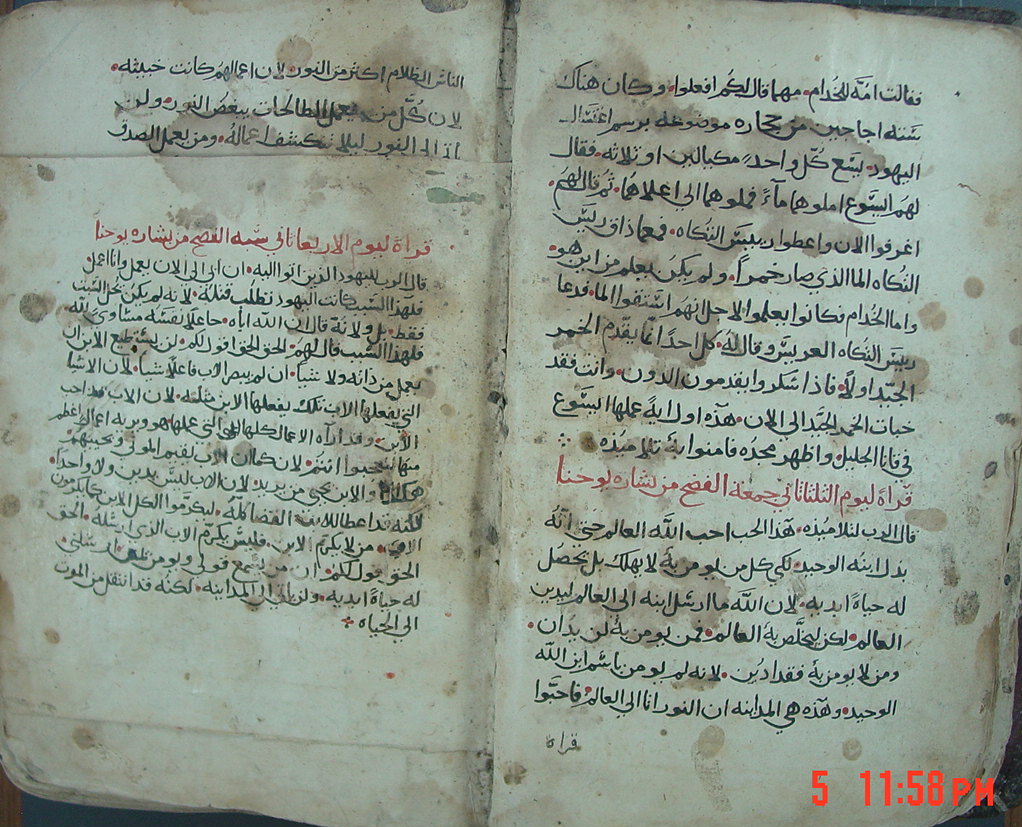 فقالت امّه للخدام • مهما قال لكم افعلوا • وكان هناك
ستة اجاجين من حجاره موضوعه برسم اغتسال
اليهود • يسع كلّ واحدٍ مكيالين او ثلاثه • فقال
لهم اليسوع املوها مآءً فملوها الى اعلاها • ثم قال لهم •
اغرفوا الان واعطوا رييس التكاه • فمعما ذاق رييس
التكاه الما الذي صار خمراً • ولم يكن يعلم من اين هو
واما الخدام فكانوا يعلموا لاجل انهم استقوا الما • فدعا
رييس التكاه العريس وقال له • كل احدًا انما يقدم الخمر
الجيّد اولاً • فاذا سكروا يقدمون الدون • وانت فقد
خبات الخمر الجيّد الى الان • هذه اول ايةً عملها اليسوع
في قانا الجليل واظهر مجده فامنوا به تلاميذه
قراة ليوم الثلثا ثاني جمعة الفصح من بشاره يوحنا
قال الرب لتلاميذه • هذا الحب احب اللّه العالم حتى انه
بذل ابنه الوحيد • لكي كل من يومن به لا يهلك بل تحصل
له حياةً ابديه • لان اللّه ما ارسل ابنه الى العالم ليدين
العالم • لكن ليخلّص به العالم • فمن يومن به لن يدان •
ومن لا يومن به فقد ادين • لانه لم يومن باسم ابن اللّه
الوحيد • وهذه هي المداينه ان النور اتا الى العالم • فاحبّوا
قراة
الناس الظلام اكثر من النور • لان اعمالهم كانت خبيثه •
لان كُلّ من يعمل الطالحات يبغض النور • ولن
الى النور ليلا تكشف اعماله • ومن يعمل الصدق
قراة ليوم الاربعا ثاني سمة الفصح من بشاره يوحنا
قال الرب لليهود الذين اتوا اليه • ان ابي الى الان يعمل وانا اعمل
فلهذا السبب كانت اليهود تطلب قتله • لانه لم يكن يحل السبت
فقط • بل ولانه قال ان اللّه اباه • جاعلًا نفسه مساوي للّه
فلهذا السبب قال لهم • الحق الحق اقول لكم • لن يستطيع الابن ان
يعمل من ذاته ولا شيا • ان لم يبصر الاب فاعلًا شيا • لان الاشيا
التي يفعلها الاب تلك يفعلها الابن مثله • لان الاب قد احب
الابن • وقد اراه الاعمال كلها التي عملها هو ويريه اعمال اعظم
منها لتعجبوا انتم • لان كما ان الاب يقيم الموتى ويحييهم
هكذا والابن يحيي من يريد • لان الاب ليس يدين ولا واحداً •
لكنه قد اعطا للابن القضا كله • ليكرّموا الكل الابن كما يكرمون
الاب • من لا يكرّم الابن • فليس يكرّم الاب الذي ارسله • الحق
الحق اقول لكم • ان من يسمع قولي ويومن بمن ارسلني •
له حياةً ابديه • ولن ياتي الى المداينه • لكنه قد انتقل من الموت
الى الحياه
5 11:58 PM